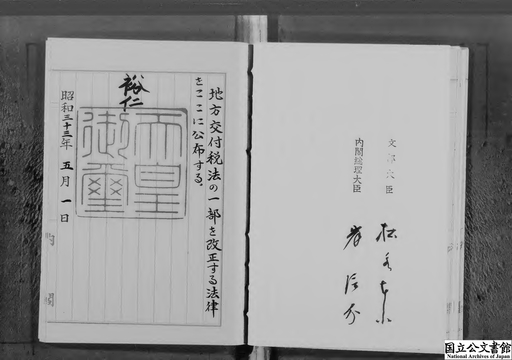 文部大臣 松永東
内閣総理大臣 岸信介
地方交付税法の一部を改正する法律
をここに公布する。
裕仁
天皇
御璽
昭和三十三年 五月 一日
国立公文書館
National Archives of Japan